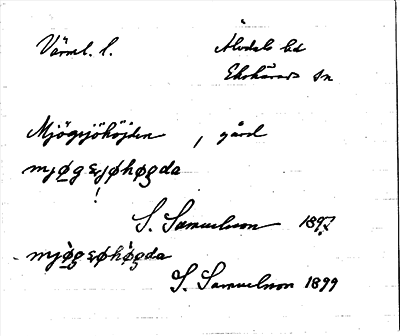 Värml. l. Älvdals hd
Ekshärads sn
Mjögsjöhöjden, gård
mjøgsjøhøgda
!
S. Samuelsson 1897
mjøgsøhøgda
S. Samuelsson 1899